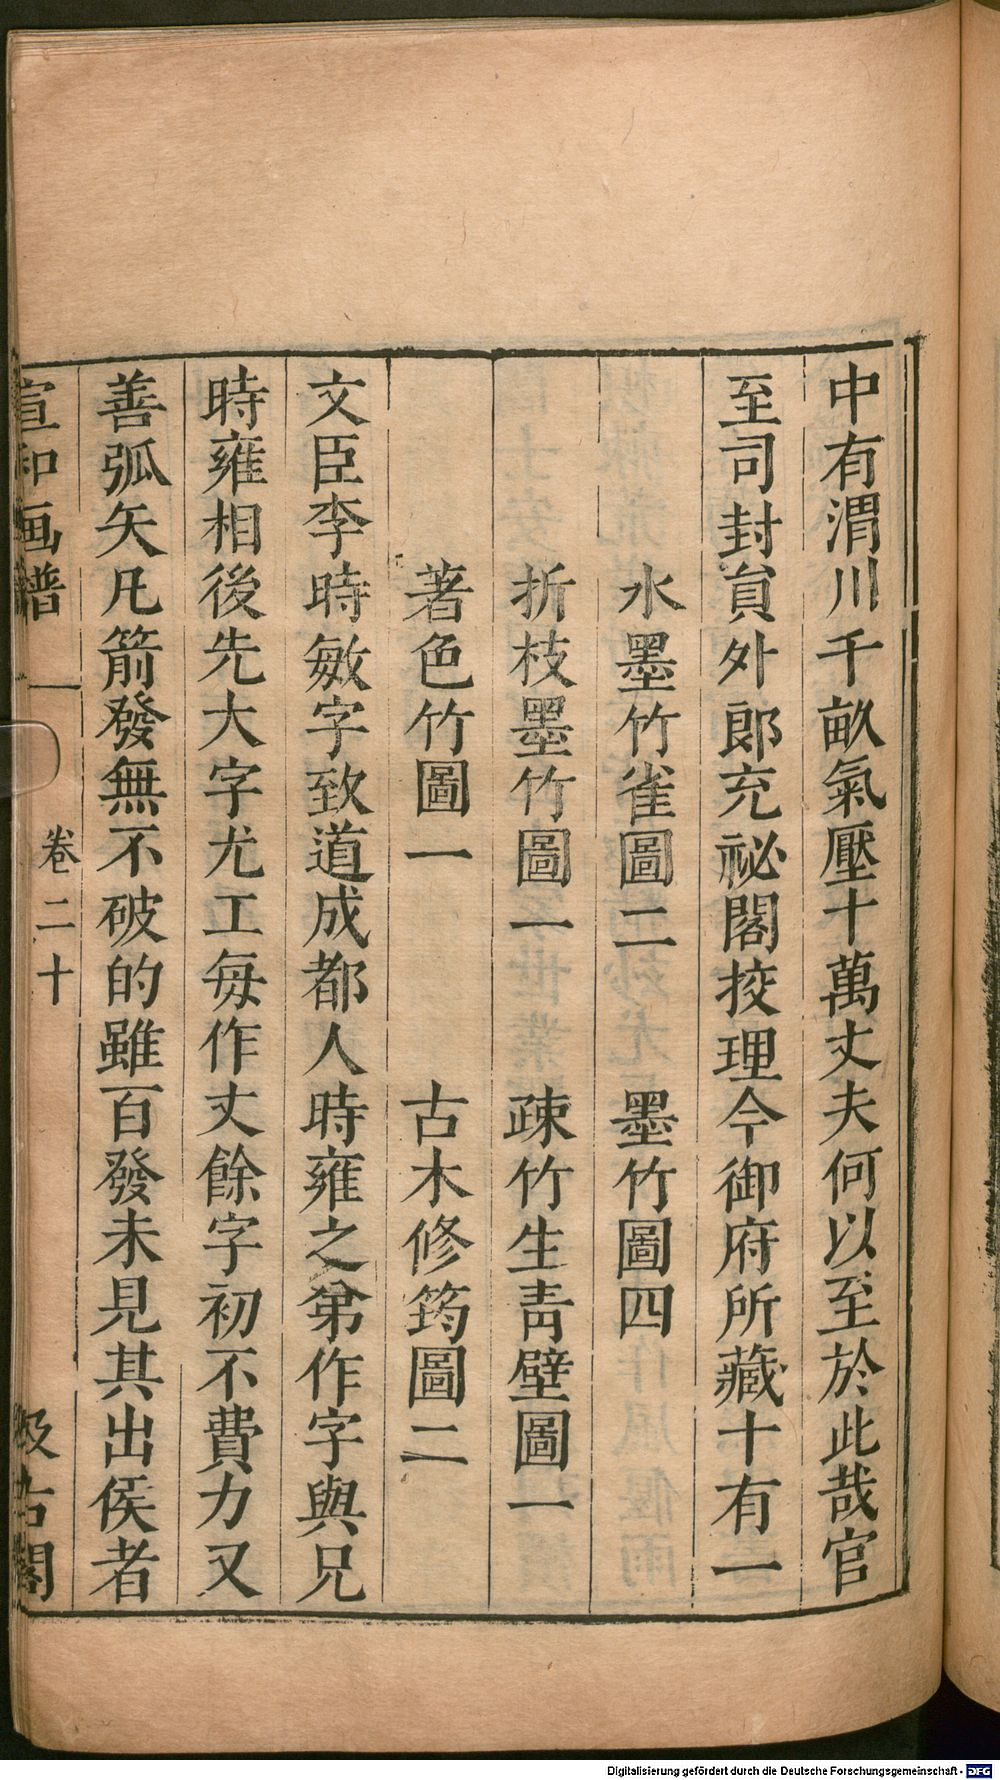 中有渭川千畝氣壓十萬丈夫何以至於此哉官
至司封員外郎充祕閣挍理今御府所藏十有一
水墨竹雀圖二 墨竹圖四
折枝墨竹圖一 疎竹生青壁圖一
著色竹圖一 古木修筠圖二
文臣李時敏字致道成都人時雍之弟作字與兄
時雍相後先大字尤工每作丈餘字初不費力又
善弧矢凡箭發無不破的雖百發未見其出侯者
宣和画譜 卷二十 汲古閣
Digitalisierung gefördert durch die Deutsche Forschungsgemeinschaft - DFG